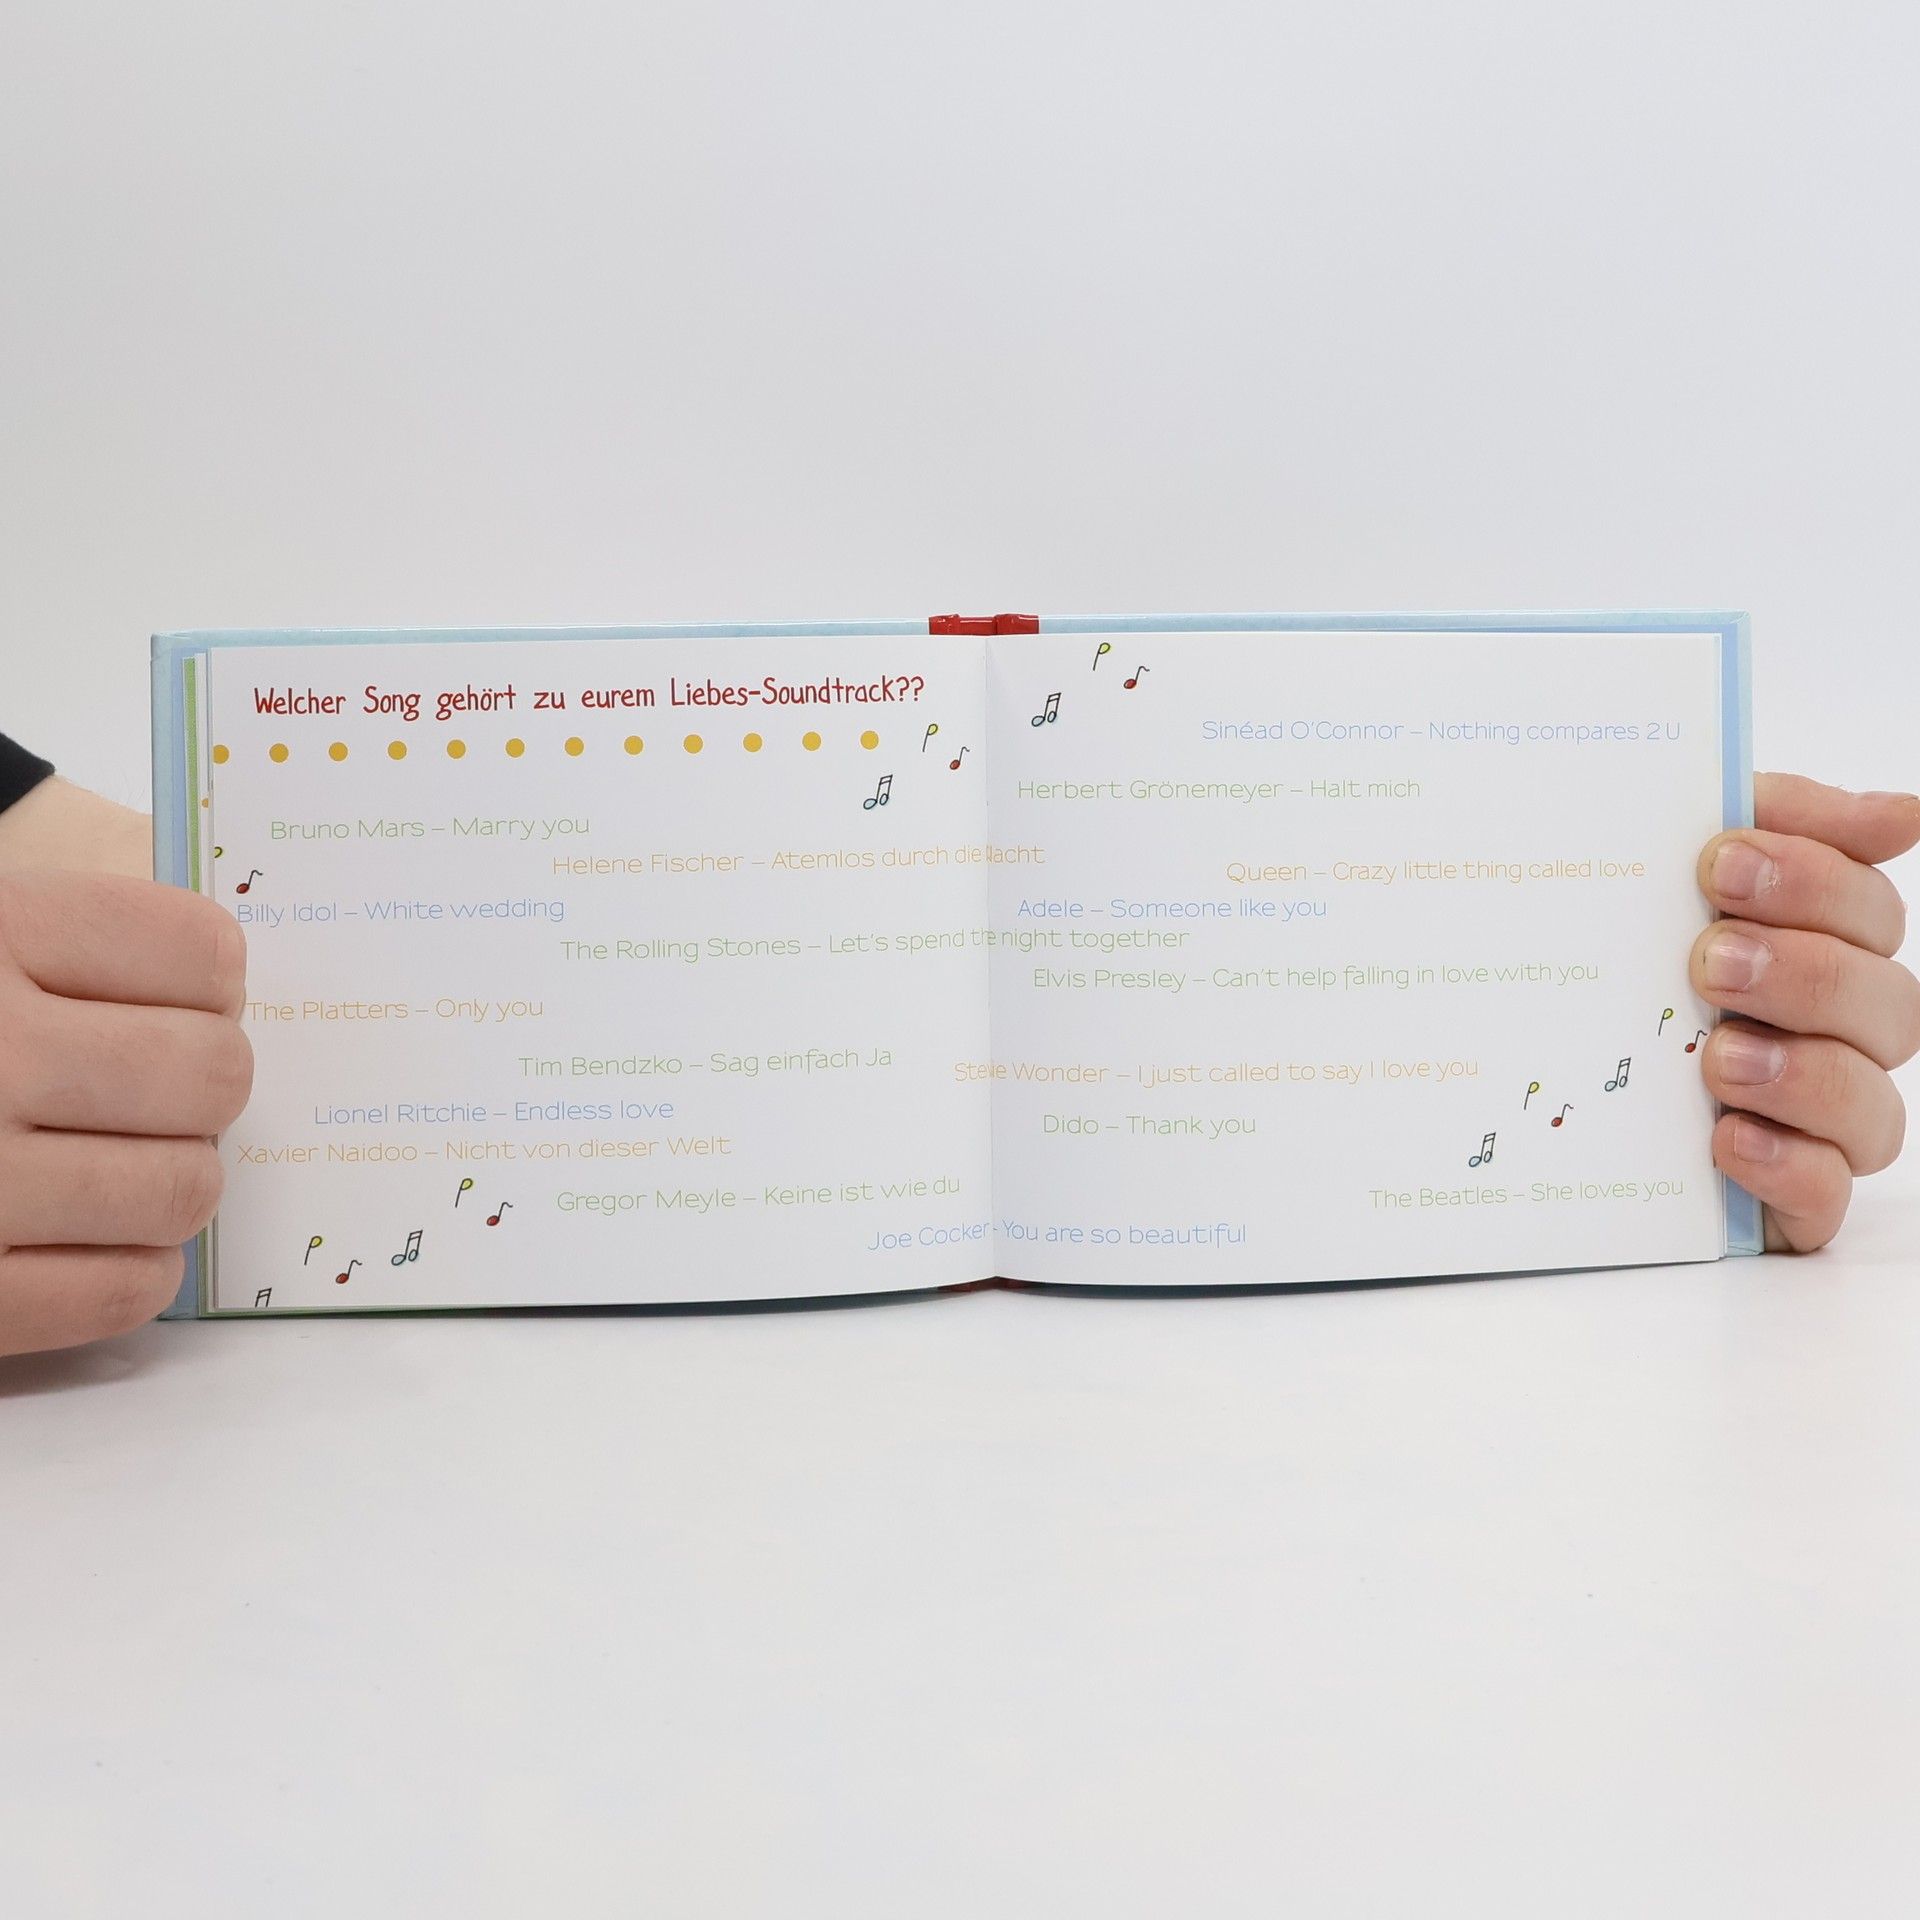 Welcher Song gehört zu eurem Liebes-Soundtrack??
Bruno Mars – Marry you
Helene Fischer – Atemlos durch die Nacht
Billy Idol – White wedding
The Rolling Stones – Let's spend the night together
The Platters – Only you
Tim Bendzko – Sag einfach Ja
Lionel Ritchie – Endless love
Xavier Naidoo – Nicht von dieser Welt
Gregor Meyle – Keine ist wie du
Joe Cocker - You are so beautiful
Sinéad O'Connor – Nothing compares 2 U
Herbert Grönemeyer – Halt mich
Queen – Crazy little thing called love
Adele – Someone like you
Elvis Presley – Can't help falling in love with you
Stevie Wonder – I just called to say I love you
Dido – Thank you
The Beatles – She loves you